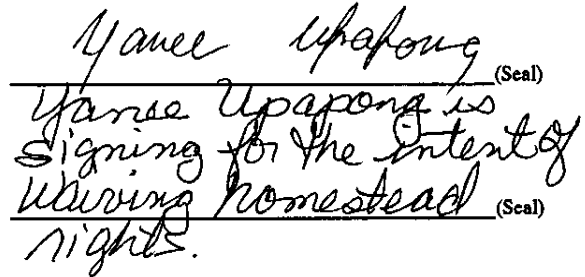 Yanee Upapong
(Seal)
Yanee Upapong is
signing for the intent of
waiving homestead
(Seal)
rights.